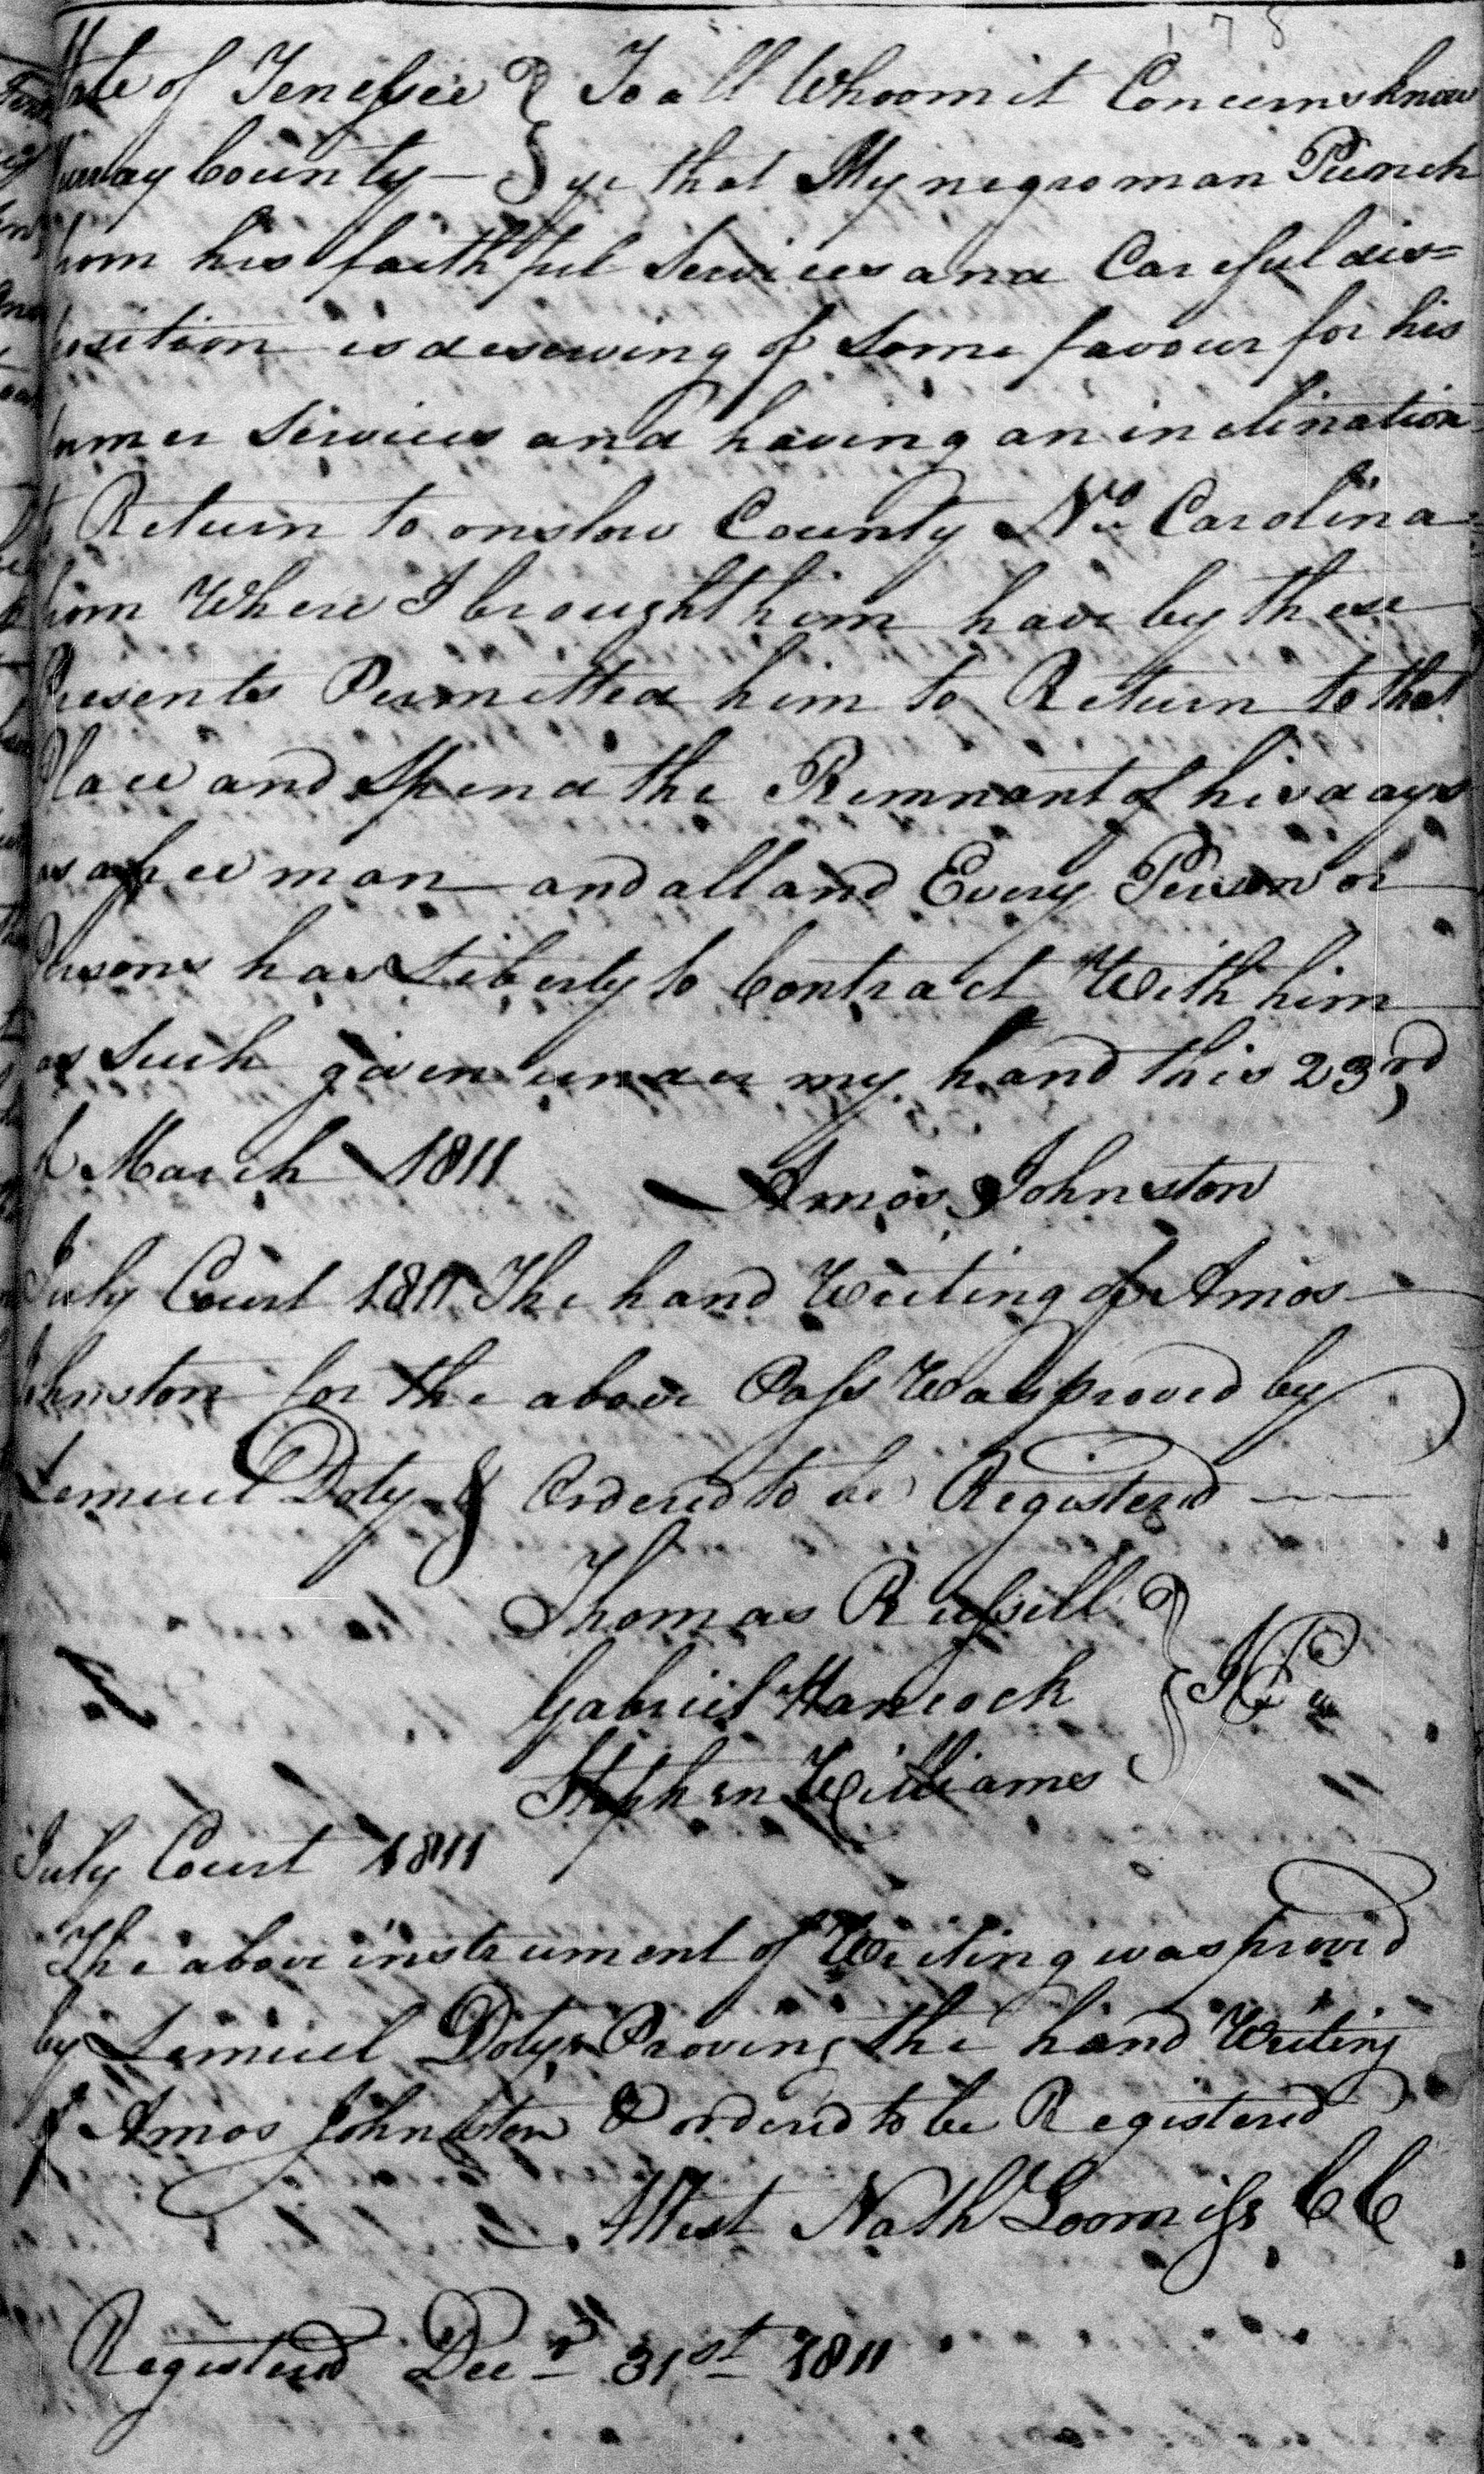 178
State of Tenessee } To all Whoom it Concerns know
Murray County — } ye that My negro man Punch
from his faithful Services and Careful dis=
position is deserving of Some favour for his
former Services and having an inclination
to Return to onslow County No Carolina
from Where I brought him have by these
Presents Permitted him to Return to that
Place and Spend the Remnant of his days
as a free man and all and Every Person or
Persons has Liberty to Contract With him
as Such given under my hand this 23rd
of March 1811 Amos Johnston
July Court 1811 The hand Writing of Amos
Johnston for the above Pass Was proved by
Lemuel Doty & Ordered to be Registered
Thomas Russell
Gabriel Hancock } JPs
Stephen Williams
July Court 1811
The above instrument of Writing was proved
by Lemuel Doty Proving the hand Writing
of Amos Johnston & ordered to be Registered
Attest Nath Loomiss CC
Registered Decr 31st 1811